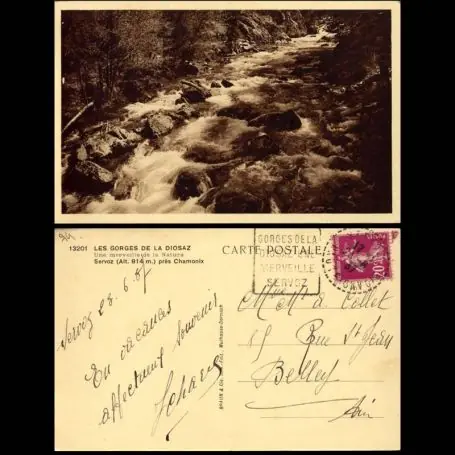 13201 LES GORGES DE LA DIOSAZ
Une merveille de la Nature
Servoz (Alt. 814 m.) près Chamonix
CARTE POSTALE
GORGES DE LA
DIOSAZ UNE
MERVEILLE
SERVOZ
20
Servoz 28.6.37
En vacances
affectueux souvenir
BRAUN & Cie
Mulhouse-Dornach
Collet
Rue St Jean
Belley
Ain